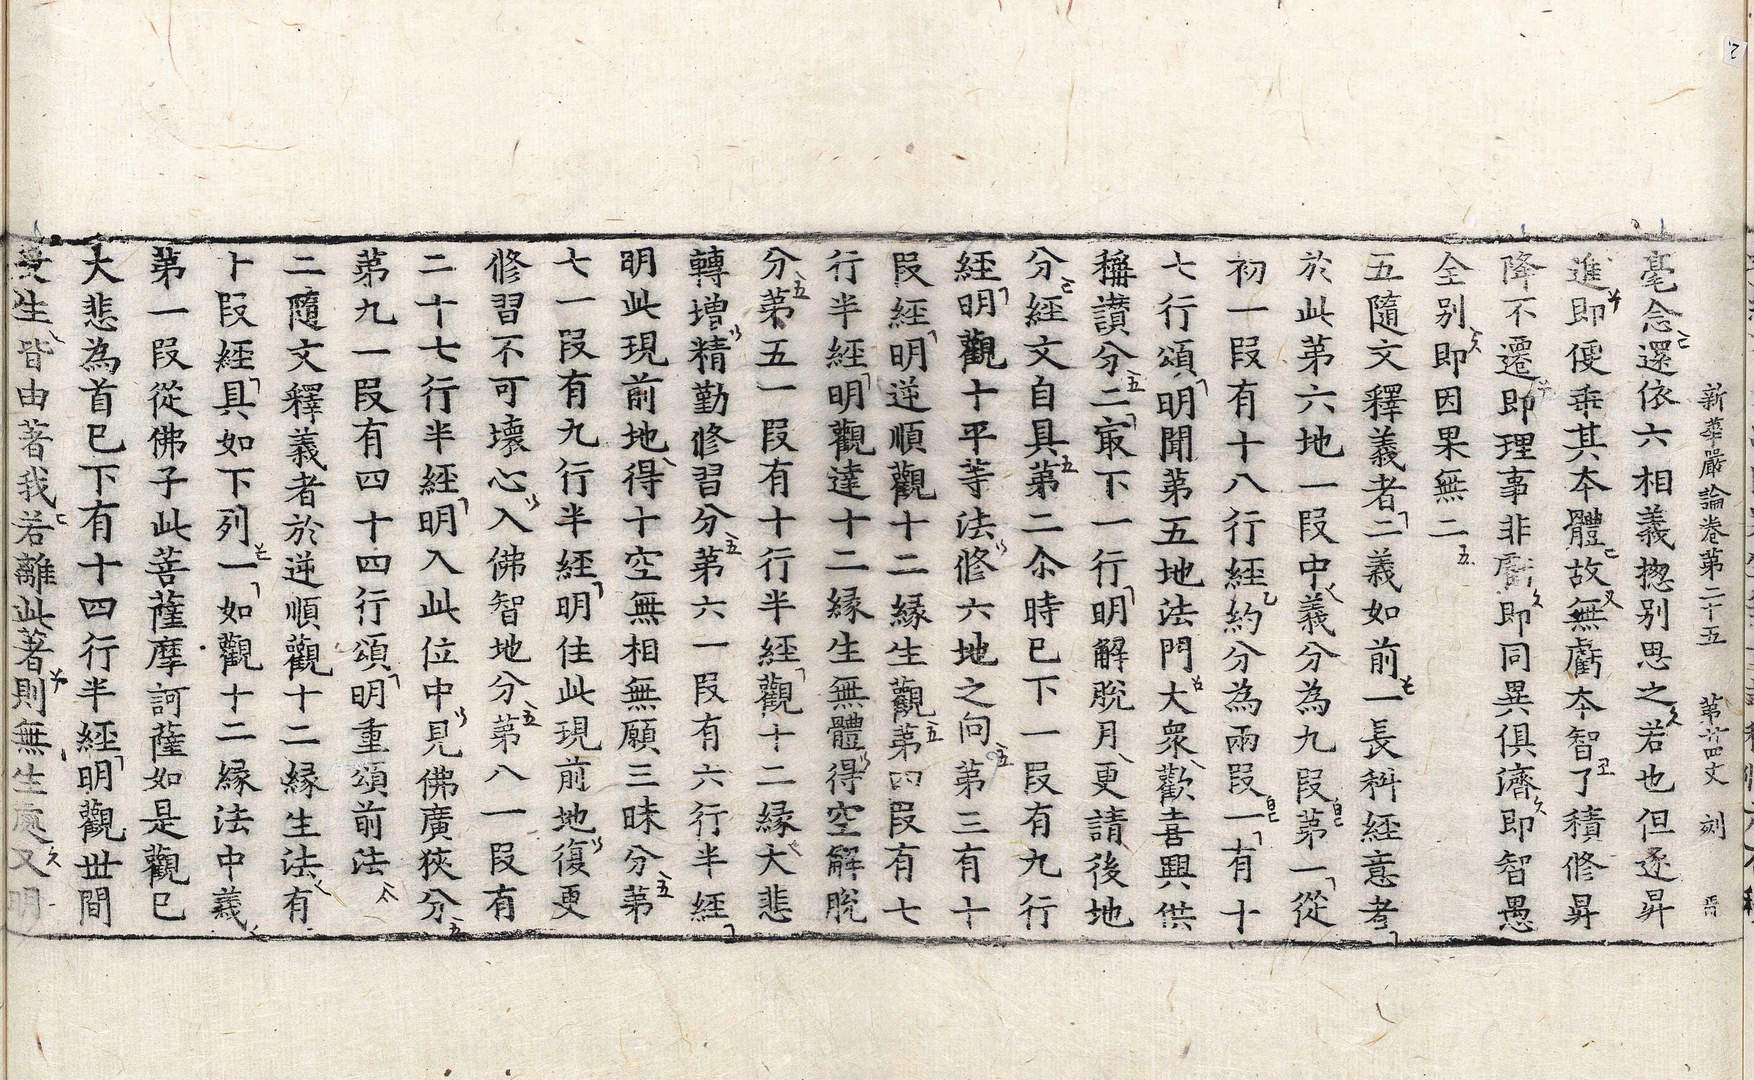 新華嚴論卷第二十五 第廿四丈 刻
毫念還依六相義揔别思之若也但逐昇
進即便乖其本體故無虧本智了積修昇
降不遷即理事非虧即同異俱濟即智愚
全别即因果無二
五隨文釋義者二義如前一長科經意者
於此第六地一段中義分為九段第一從
初一段有十八行經約分為兩段一有十
七行頌明聞第五地法門大衆歡喜興供
稱讃分二㝡下一行明解脫月更請後地
分經文自具第二尒時已下一段有九行
經明觀十平等法修六地之向第三有十
段經明逆順觀十二縁生觀第四段有七
行半經明觀達十二縁生無體得空解脫
分第五一段有十行半經觀十二縁大悲
轉增精勤修習分第六一段有六行半經
明此現前地得十空無相無願三昧分第
七一段有九行半經明住此現前地復更
修習不可壞心入佛智地分第八一段有
二十七行半經明入此位中見佛廣狹分
第九一段有四十四行頌明重頌前法
二隨文釋義者於逆順觀十二縁生法有
十段經具如下列一如觀十二縁法中義
第一段從佛子此菩薩摩訶薩如是觀已
大悲為首已下有十四行半經明觀世間
受生皆由著我若離此著則無生處又明